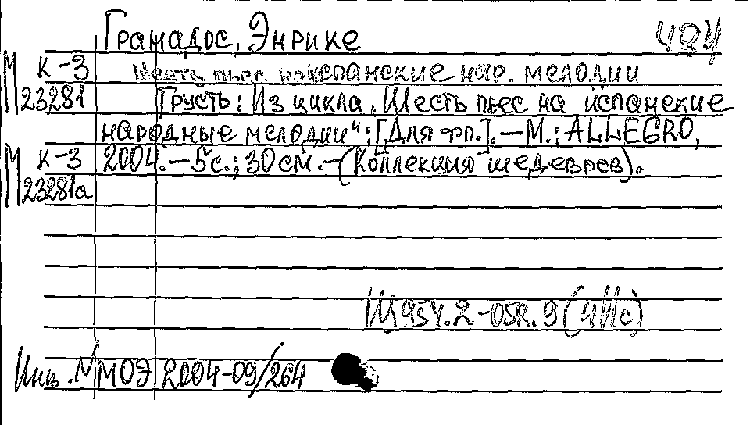 Гранадос, Энрике
484
М К-3 Шесть пьес на испанские нар. мелодии
23281 Грусть: Из цикла „Шесть пьес на испанские
народные мелодии“; [Для фп.]. – М.: ALLEGRO,
М К-3 2004. – 5 с.; 30 см. – (Коллекция шедевров).
23281а
Инв. N МОЭ 2004-09/264